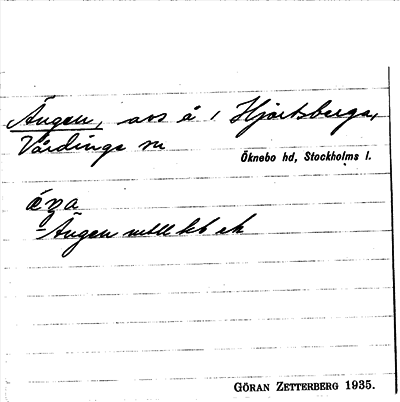 Ängen, avs å 1 Hjortsberga,
Vårdinge sn
Öknebo hd, Stockholms l.
Ängen
GÖRAN ZETTERBERG 1935.